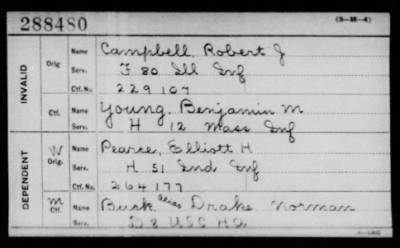 288480 (3-M-4)
INVALID
Orig. Name Campbell, Robert J
Serv. F 80 Ill Inf
Ctf. No. 229107
Ctf. Name Young, Benjamin M.
Serv. H 12 Mass Inf
DEPENDENT
W Orig. Name Pearce, Elliott H
Serv. H 51 Ind Inf
Ctf. No. 264177
M Ctf. Name Burk alias Drake Norman
Serv. D 8 USC HA.